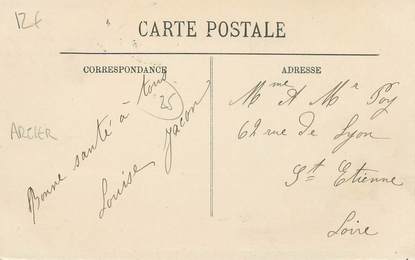 12€
CARTE POSTALE
CORRESPONDANCE
ADRESSE
25
ARCIER
Bonne santé à tous
Louise Jacon
Mme & Mr Poy
62 rue de Lyon
St Etienne
Loire